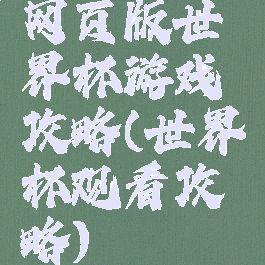 网页版世
界杯游戏
攻略(世界
杯观看攻
略)